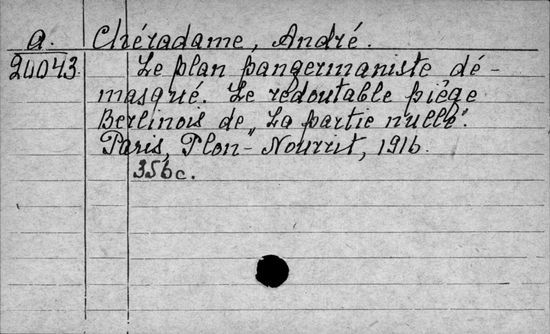 a. Chéradame, André.
24043 Le plan pangermaniste dé-
masqué. Le redoutable piège
Berlinois de „La partie nulle".
Paris, Plon-Nourrit, 1916.
356c.